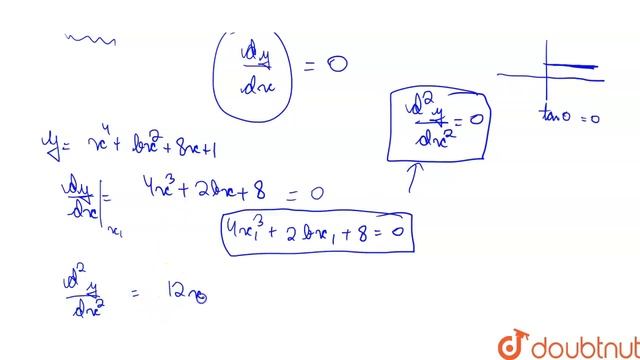 dy/dx = 0
d²y/dx² = 0
tan 0 = 0
y = x⁴ + bx² + 8x + 1
dy/dx|x₁ = 4x³ + 2bx + 8 = 0
4x₁³ + 2bx₁ + 8 = 0
d²y/dx² = 12x
doubtnut